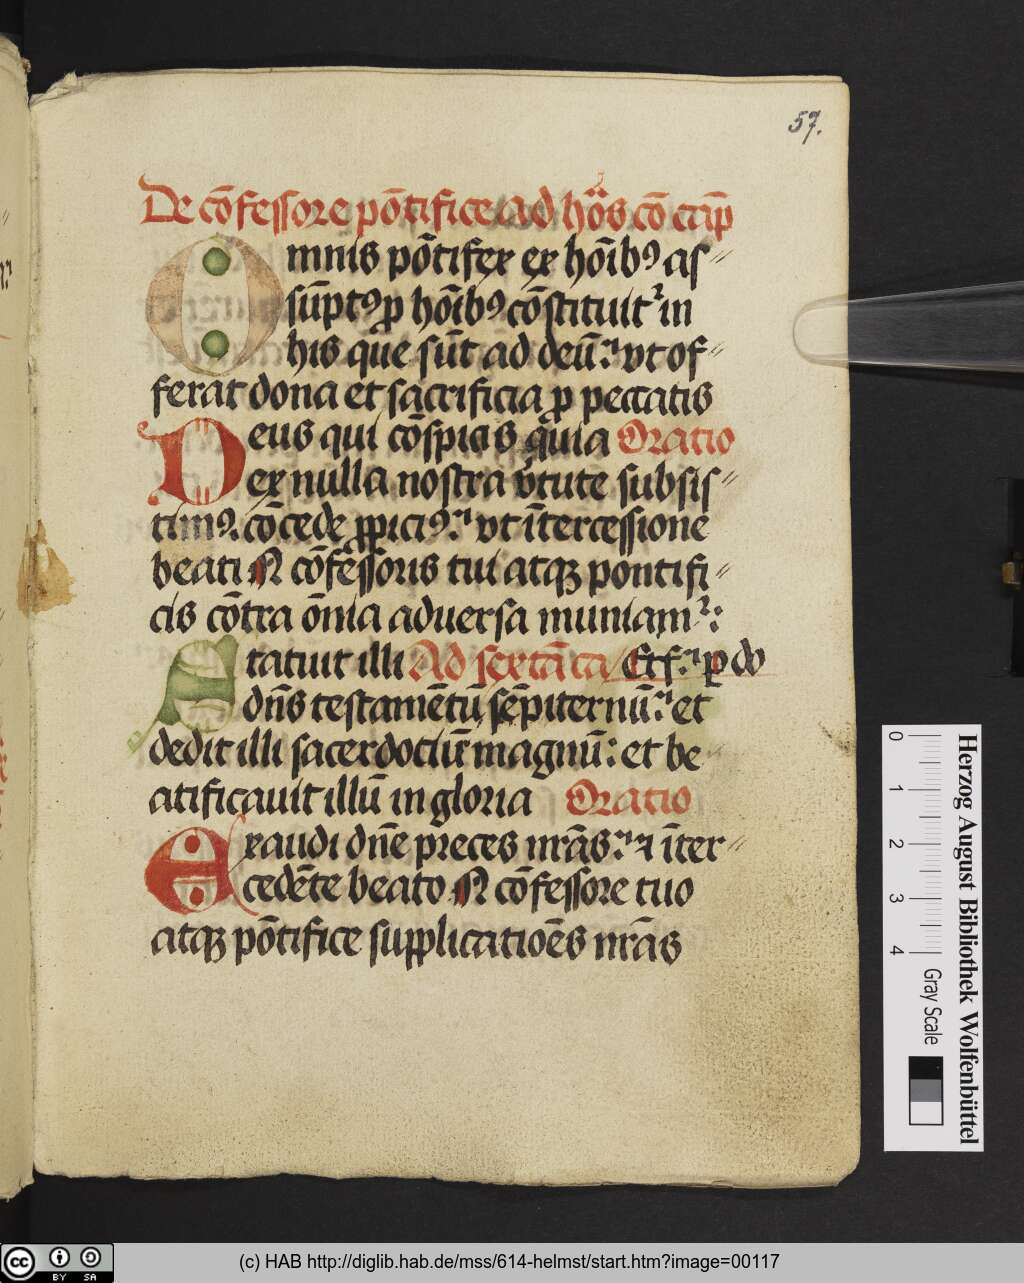 57.
De cōfessore pōtifice ad hōs cō cap̄
Omnis pōtifex ex hoībꝰ as〃
sūptꝰ ꝓ hoībꝰ cōstituit᷑ in
his que sūt ad deū: vt of〃
ferat dona et sacrificia ꝓ peccatis
Deus qui cōspicis quia Oratio
ex nulla nostra v̄tute subsis〃
timꝰ: cōcede ꝓpiciꝰ: vt ītercessione
beati N cōfessoris tui atqꝫ pontifi〃
cis cōtra oīa aduersa muniam᷑:
Statuit illi Ad sextā ca Etf: ꝓ do
dn̄s testamētū sēpiternū: et
dedit illi sacerdotiū magnū: et be
atificauit illū in gloria Oratio
Exaudi dn̄e preces nr̄as: ⁊ īter〃
cedēte beato N cōfessore tuo
atqꝫ pōtifice supplicatiōes nr̄as
0 1 2 3 4
Gray Scale
Herzog August Bibliothek Wolfenbüttel
cc BY SA
(c) HAB http://diglib.hab.de/mss/614-helmst/start.htm?image=00117